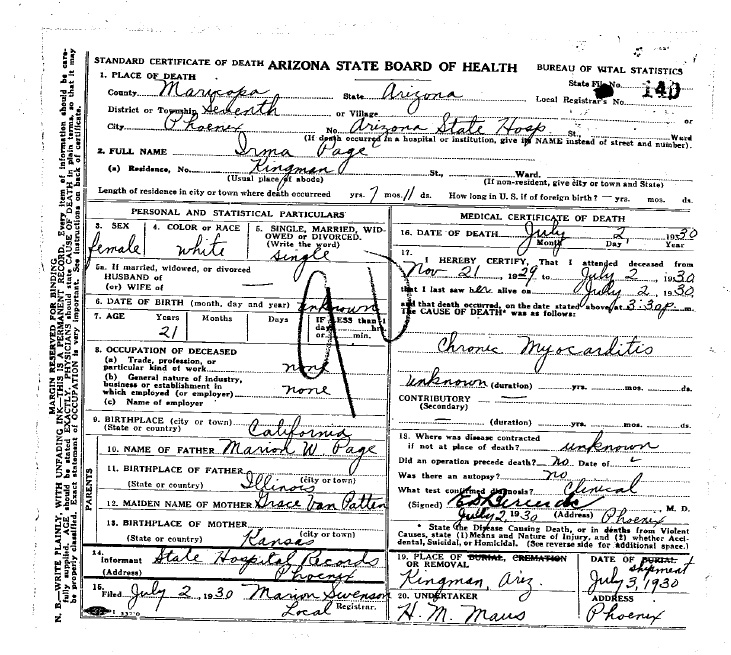 STANDARD CERTIFICATE OF DEATH ARIZONA STATE BOARD OF HEALTH BUREAU OF VITAL STATISTICS
1. PLACE OF DEATH State File No.
County Maricopa State Arizona Local Registrar's No. 140
District or Township Seventh or Village or
City Phoenix No. Arizona State Hosp. St., Ward
(If death occurred in a hospital or institution, give its NAME instead of street and number).
2. FULL NAME Irma Page
(a) Residence, No. Kingman St., Ward.
(Usual place of abode) (If non-resident, give city or town and State)
Length of residence in city or town where death occurred yrs. 7 mos. 11 ds. How long in U. S. if of foreign birth? yrs. mos. ds.
PERSONAL AND STATISTICAL PARTICULARS
3. SEX 4. COLOR or RACE 5. SINGLE, MARRIED, WIDOWED or DIVORCED.
(Write the word)
female white single
5a. If married, widowed, or divorced
HUSBAND of
(or) WIFE of —
6. DATE OF BIRTH (month, day and year) unknown
7. AGE Years Months Days IF LESS than 1
day hrs.
21 or min.
8. OCCUPATION OF DECEASED
(a) Trade, profession, or
particular kind of work none
(b) General nature of industry,
business or establishment in
which employed (or employer) none
(c) Name of employer
9. BIRTHPLACE (city or town)
(State or country) California
PARENTS
10. NAME OF FATHER Marion W. Page
11. BIRTHPLACE OF FATHER (city or town)
(State or country) Illinois
12. MAIDEN NAME OF MOTHER Grace Van Patten
13. BIRTHPLACE OF MOTHER (city or town)
(State or country) Kansas
14. Informant State Hospital Records
(Address) Phoenix
15. Filed July 2, 1930 Marion Swenson
Local Registrar.
MEDICAL CERTIFICATE OF DEATH
16. DATE OF DEATH July 2 1930
Month Day Year
17. I HEREBY CERTIFY, That I attended deceased from
Nov 21, 1929 to July 2, 1930
that I last saw her alive on July 2, 1930
and that death occurred, on the date stated above, at 3:30a. m.
The CAUSE OF DEATH* was as follows:
Chronic Myocarditis
unknown (duration) yrs. mos. ds.
CONTRIBUTORY —
(Secondary)
— (duration) yrs. mos. ds.
18. Where was disease contracted
if not at place of death? unknown
Did an operation precede death? no Date of
Was there an autopsy? no
What test confirmed diagnosis? Clinical
(Signed) M. D.
July 2, 1930 (Address) Phoenix
* State the Disease Causing Death, or in deaths from Violent
Causes, state (1) Means and Nature of Injury, and (2) whether Accidental,
Suicidal, or Homicidal. (See reverse side for additional space.)
19. PLACE OF BURIAL, CREMATION DATE OF BURIAL
OR REMOVAL shipment
Kingman, Ariz. July 3, 1930
20. UNDERTAKER ADDRESS
H. M. Maus Phoenix
MARGIN RESERVED FOR BINDING
N. B.—WRITE PLAINLY, WITH UNFADING INK—THIS IS A PERMANENT RECORD. Every item of information should be carefully
supplied. AGE should be stated EXACTLY. PHYSICIANS should state CAUSE OF DEATH in plain terms, so that it may
be properly classified. Exact statement of OCCUPATION is very important. See instructions on back of certificate.